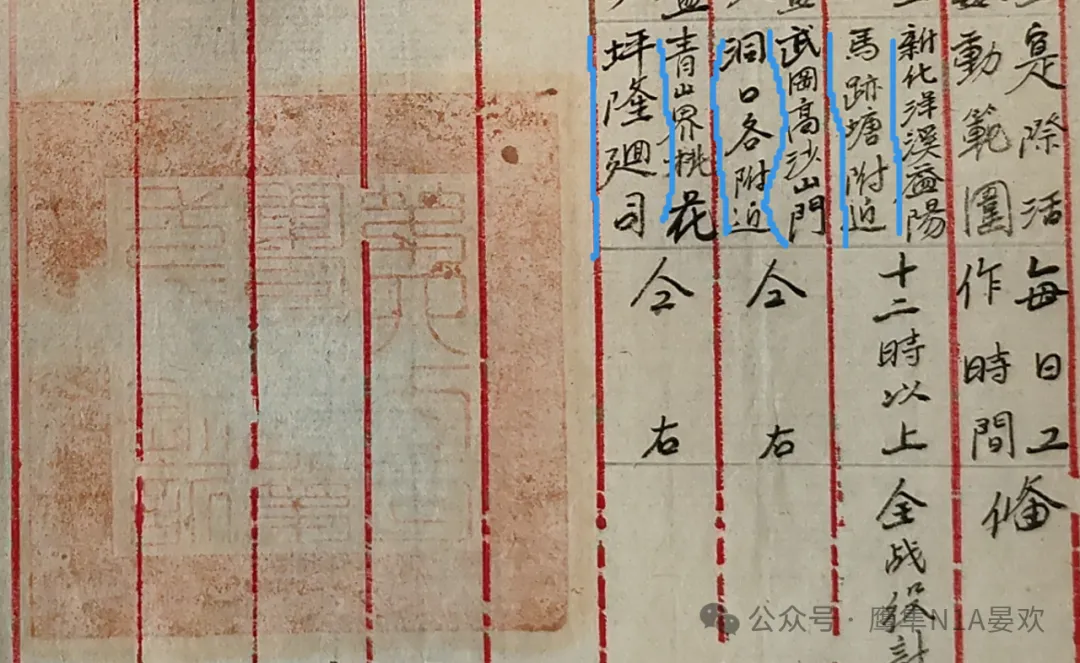 寔際活
動範圍
每日工
作時間
俻
新化洋溪益陽
馬跡塘附近
十二時以上
全战役計
武岡高沙山門
洞口各附近
仝右
青山界桃花
坪隆廻司
仝右
公众号 · 鹰隼N1A晏欢